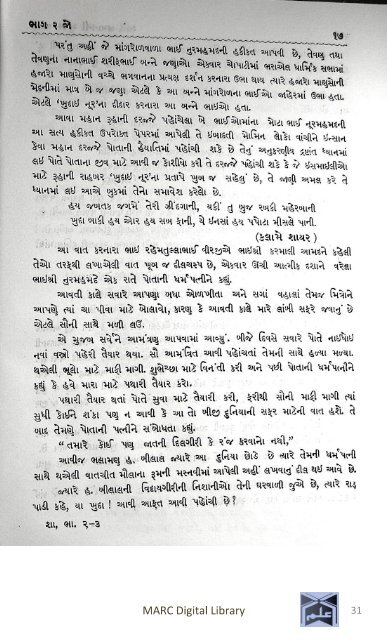 ભાગ ૨ જો
૧૭
પરંતુ અહીં જે માંગરોળવાળા ભાઈ નુરમહમદની હકીકત આપવી છે, તેવણુ તથા
તેવણુના નાનાભાઈ શરીફભાઈ બન્ને જણાઓ એકવાર ચોપાટીમાં ભરાએલ ધાર્મિક સભામાં
હજારો માણસોની વચ્ચે ભગવાનના પ્રત્યક્ષ દર્શન કરનારા ઉભા થાય ત્યારે હજારો માણસોની
મેદનીમાં માત્ર બે જ જણા એટલે કે આ બન્ને માંગરોળના ભાઈઓ જાહેરમાં ઉભા હતા.
એટલે 'ખુદાઈ નૂર'ના દીદાર કરનારા આ બન્ને ભાઈઓ હતા.
આવા મહાન રૂહાની દરજ્જે પહોંચેલા બે ભાઈઓમાંના મોટા ભાઈ નુરમહમદની
આ સત્ય હકીકત ઉપરોક્ત પેપરમાં આપેલી તે ઇબાદતી મોમિન લોકો વાંચીને ઈન્સાન
કેવા મહાન દરજ્જે પોતાની હૈયાતિમાં પહોંચી શકે છે તેનું અનુકરણીય દ્રષ્ટાંત ધ્યાનમાં
લઇ પોતે પોતાના જીવ માટે આવી જ કોશીષ કરી તે દરજ્જે પહોંચી શકે કે જે ઇસમાઈલીઓ
માટે રૂહાની રાહબર 'ખુદાઈ નૂર'ના પ્રતાપે ખુબ જ સહેલું છે, તે જાણી અમલ કરે તે
ધ્યાનમાં લઇ આએ બુકમાં તેનો સમાવેશ કરેલો છે.
હય જબતક જગમેં તેરી જીંદગાની, યહીં તું બુજ રબકી મહેરબાની
ખુદા બાકી હય ઓર હય સબ ફાની, યે ઈનસાં હય પપોટા મીસલે પાની.
(કલામે શાયર)
આ વાત કરનારા ભાઈ રહેમતુલ્લાભાઈ વીરજીએ ભાઈશ્રી કરમાલી આમદને કહેલી
તેઓ તરફથી લખાએલી વાત ખૂબ જ દીલચસ્પ છે, એકવાર ઊંચી આત્મીક દશાને વરેલા
ભાઈશ્રી નુરમહમદે એક રાતે પોતાની ધર્મપત્નીને કહ્યું.
આવતી કાલે સવારે આપણા બધા ઓળખીતા અને સગાં વહાલાં તેમજ મિત્રોને
આપણે ત્યાં ચા પીવા માટે બોલાવો, કારણ કે આવતી કાલે મારે લાંબી સફરે જવાનું છે
એટલે સૌની સાથે મળી લઉં.
એ મુજબ સર્વેને આમંત્રણ આપવામાં આવ્યું. બીજે દિવસે સવારે પોતે નાહીધોઈ
નવાં વસ્ત્રો પહેરી તૈયાર થયા. સૌ આમંત્રિત આવી પહોંચતાં તેમની સાથે હળ્યા મળ્યા.
થએલી ભૂલો માટે માફી માગી. શુભેચ્છા માટે વિનંતી કરી અને પછી પોતાની ધર્મપત્નીને
કહ્યું કે હવે મારા માટે પથારી તૈયાર કરો.
પથારી તૈયાર થતાં પોતે સુવા માટે તૈયારી કરી, ફરીથી સૌની માફી માગી ત્યાં
સુધી કોઈને શંકા પણુ ન આવી કે આ તો બીજી દુનિયાની સફર માટેની વાત હશે. તે
બાદ તેમણે પોતાની પત્નીને સંબોધતા કહ્યું.
"તમારે કોઈ પણુ જાતની દિલગીરી કે રંજ કરવાનો નથી,"
આવીજ ભલામણુ હ. બીલાલ જ્યારે આ દુનિયા છોડે છે ત્યારે તેમની ધર્મપત્ની
સાથે થએલી વાતચીત મૌલાના રૂમની મસ્નવીમાં આપેલી અહીં લખવાનું દીલ થઈ આવે છે.
જ્યારે હ. બીલાલની વિદાયગીરીની નિશાનીઓ તેની ઘરવાળી જુએ છે, ત્યારે રાડ
પાડી કહે, યા ખુદા ! આવી આફત આવી પહોંચી છે ?
શા, ભા. ૨-૩
MARC Digital Library
31